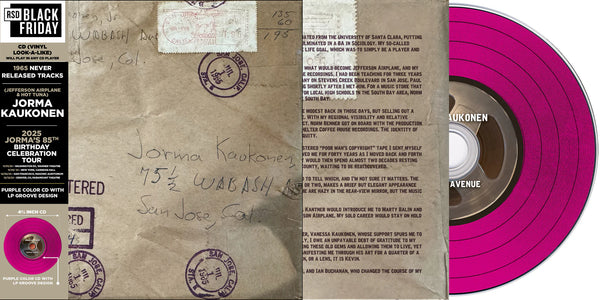 RSD BLACK FRIDAY
CD (VINYL
LOOK-A-LIKE)
WILL PLAY IN ANY CD PLAYER
1965 NEVER
RELEASED TRACKS
(JEFFERSON AIRPLANE
& HOT TUNA)
JORMA
KAUKONEN
2025
JORMA'S 85TH
BIRTHDAY
CELEBRATION
TOUR
PURPLE COLOR CD WITH
LP GROOVE DESIGN
4¾ INCH CD
PURPLE COLOR CD WITH
LP GROOVE DESIGN
nen, Jr
WABASH Ave
Jose, Cal.
135
60
1.95
Jorma Kaukonen
75 ½ WABASH
San Jose, Cal.
TERED
SAN JOSE, CALIF.
JUL
1965
STA. V
ATED FROM THE UNIVERSITY OF SANTA CLARA, PUTTING
LMINATED IN A BA IN SOCIOLOGY. MY SO-CALLED
LIFE GOAL, AND WHICH WAS TO SIMPLY BE A PLAYER
WHAT WOULD BECOME JEFFERSON AIRPLANE, AND MY
E RECORDINGS. I HAD BEEN TEACHING FOR THREE YEARS
NY ON STEVENS CREEK BOULEVARD IN SAN JOSE. PAUL
G SHORTLY AFTER I MET HIM. FOR A MUSIC STORE THAT
OR LOCAL HIGH SCHOOLS IN THE SOUTH BAY AREA, NORM
SOUTH BAY!
MODEST BACK IN THOSE DAYS, BUT SELLING OUT A
WITH MY REGIONAL VISIBILITY AND RELATIVE
T, NORM RENNER GOT ON BOARD WITH THE PRODUCTION
HELTER COFFEE HOUSE RECORDINGS. THE IDENTITY OF
NUITY.
STERED "POOR MAN'S COPYRIGHT" TAPE I SENT MYSELF
ED ME FOR FORTY YEARS AS I MOVED BACK AND FORTH
WOULD THEN SPEND ALMOST TWO DECADES RESTING
OUNTY, WAITING TO BE
TO TELL WHICH, AND I'M NOT SURE IT MATTERS. THE
OR TWO, MAKES A BRIEF BUT ELEGANT APPEARANCE
ARE HAZY IN THE REAR-VIEW MIRROR, BUT THE MUSIC
KANTNER WOULD INTRODUCE ME TO MARTY BALIN AND
SON AIRPLANE. MY SOLO CAREER WOULD STAY ON HOLD
R, VANESSA KAUKONEN, WHOSE SUPPORT SPURS ME TO
LY, I OWE AN UNPAYABLE DEBT OF GRATITUDE TO MY
ING THESE OLD GEMS AND ALLOWING THEM TO LIVE, YET
NIFESTING ME THROUGH HIS ART FOR A QUARTER OF A
N, OR A LENS, IT IS KEVIN.
L, AND IAN BUCHANAN, WHO CHANGED THE COURSE OF MY
AUKONEN
AVENUE